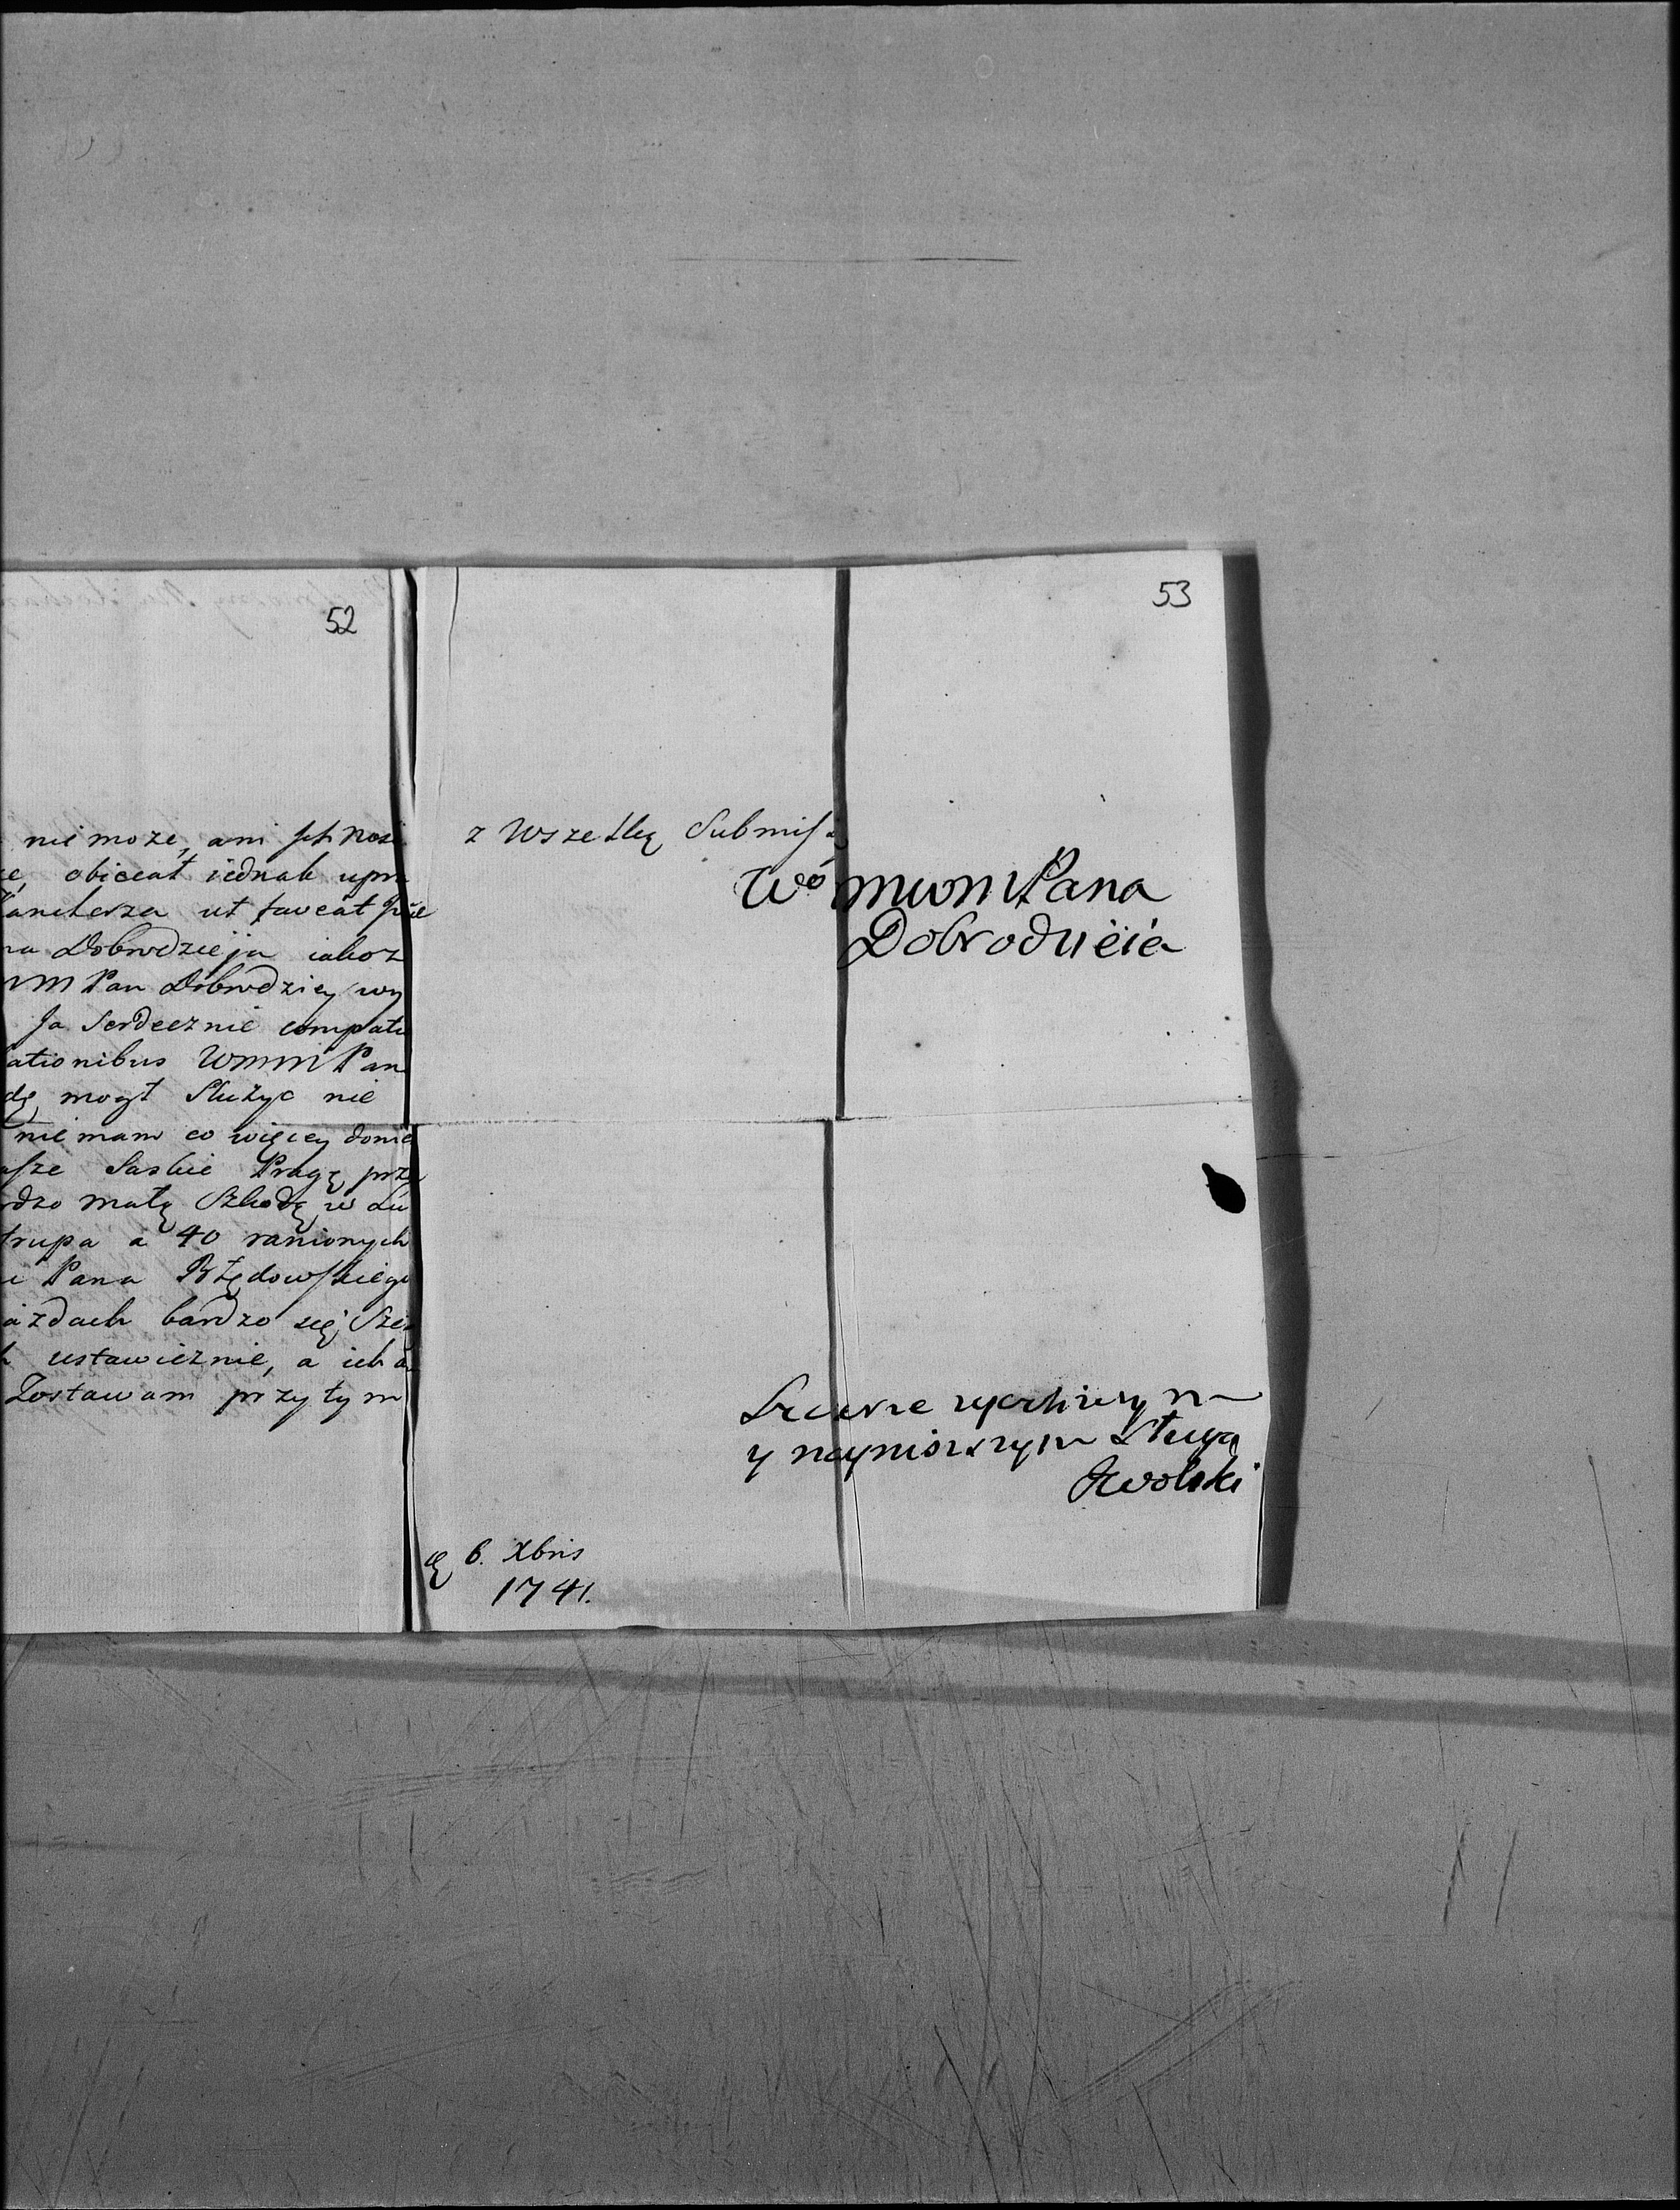 52
nie może, ani
obiecał iednak upra
ut faveat
na Dobrodzieja iakoz
WM Pan Dobrodziey wy
Ja Serdecznie compati
ationibus WMM Pan
dę mogł Służyc nie
nie mam co więcey donie
asze Saskie Pragę prze
rdzo małą Szkodę w Lu
trupa a 40 ranionych
i Pana Błędowskiego
azdach bardzo się
ustawicznie, a ich
Zostawam przytym
53
z Wszelką Submis
Pana
Dobrodzieia
Szczerze zyczliwym
y nayniższym Sługą
6. Xbris
1741.